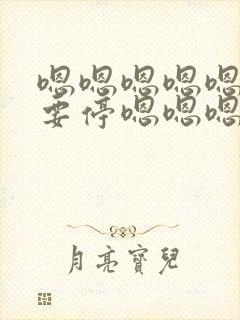 嗯嗯嗯嗯嗯
要停嗯嗯嗯
月亮寶兒